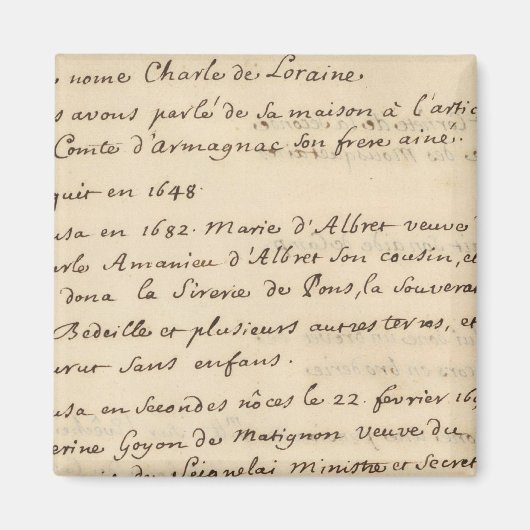 , nomé Charle de Loraine.
s avons parlé de sa maison à l'artic
Comte d'Armagnac son frere ainé.
quit en 1648.
usa en 1682. Marie d'Albret veuve
arle Amanieu d'Albret son cousin, et
dona la Sirerie de Pons, la souverai
Bedeille et plusieurs autres terres, et
urut sans enfans.
usa en secondes nôces le 22. février 16
erine Goyon de Matignon veuve du
de Seignelai Ministre et Secret